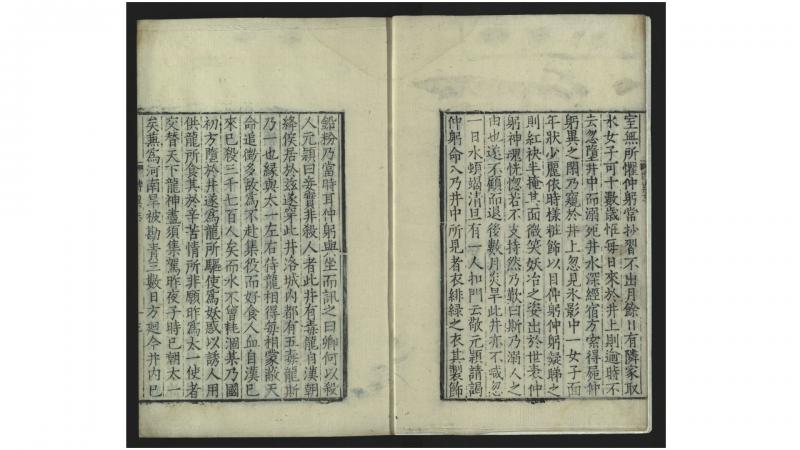 室無所懼仲躬常抄習不出月餘日有隣家取
水女子可十數歲恠每日來於井上則逾時不
去忽墮井中而溺死井水深經宿方索得屍仲
躬異之閑乃窺於井上忽見水影中一女子面
年狀少麗依時樣粧飾以目仲躬仲躬凝睇之
則紅袂半掩其面微笑妖冶之姿出於世表仲
躬神魂恍惚若不支持然乃歎曰斯乃溺人之
由也遂不顧而退後數月炎旱此井亦不减忽
一日水頓竭清旦有一人扣門云敬元穎請謁
仲躬命入乃井中所見者衣緋綠之衣其製飾
鉛粉乃當時耳仲躬與坐而訊之曰卿何以殺
人元穎曰妾實非殺人者此井有毒龍自漢朝
絳侯居於茲遂穿此井洛城內都有五毒龍斯
乃一也緣與太一左右侍龍相得每相蒙蔽天
命追徵多故爲不赴集役而好食人血自漢已
來已殺三千七百人矣而水不曾耗涸某乃國
初方墮於井遂爲龍所驅使爲妖惑以誘人用
供龍所食其於辛苦情所非願昨爲太一使者
交替天下龍神盡須集駕昨夜子時已朝太一
矣兼爲河南旱被勘責三數日方廻今井內已